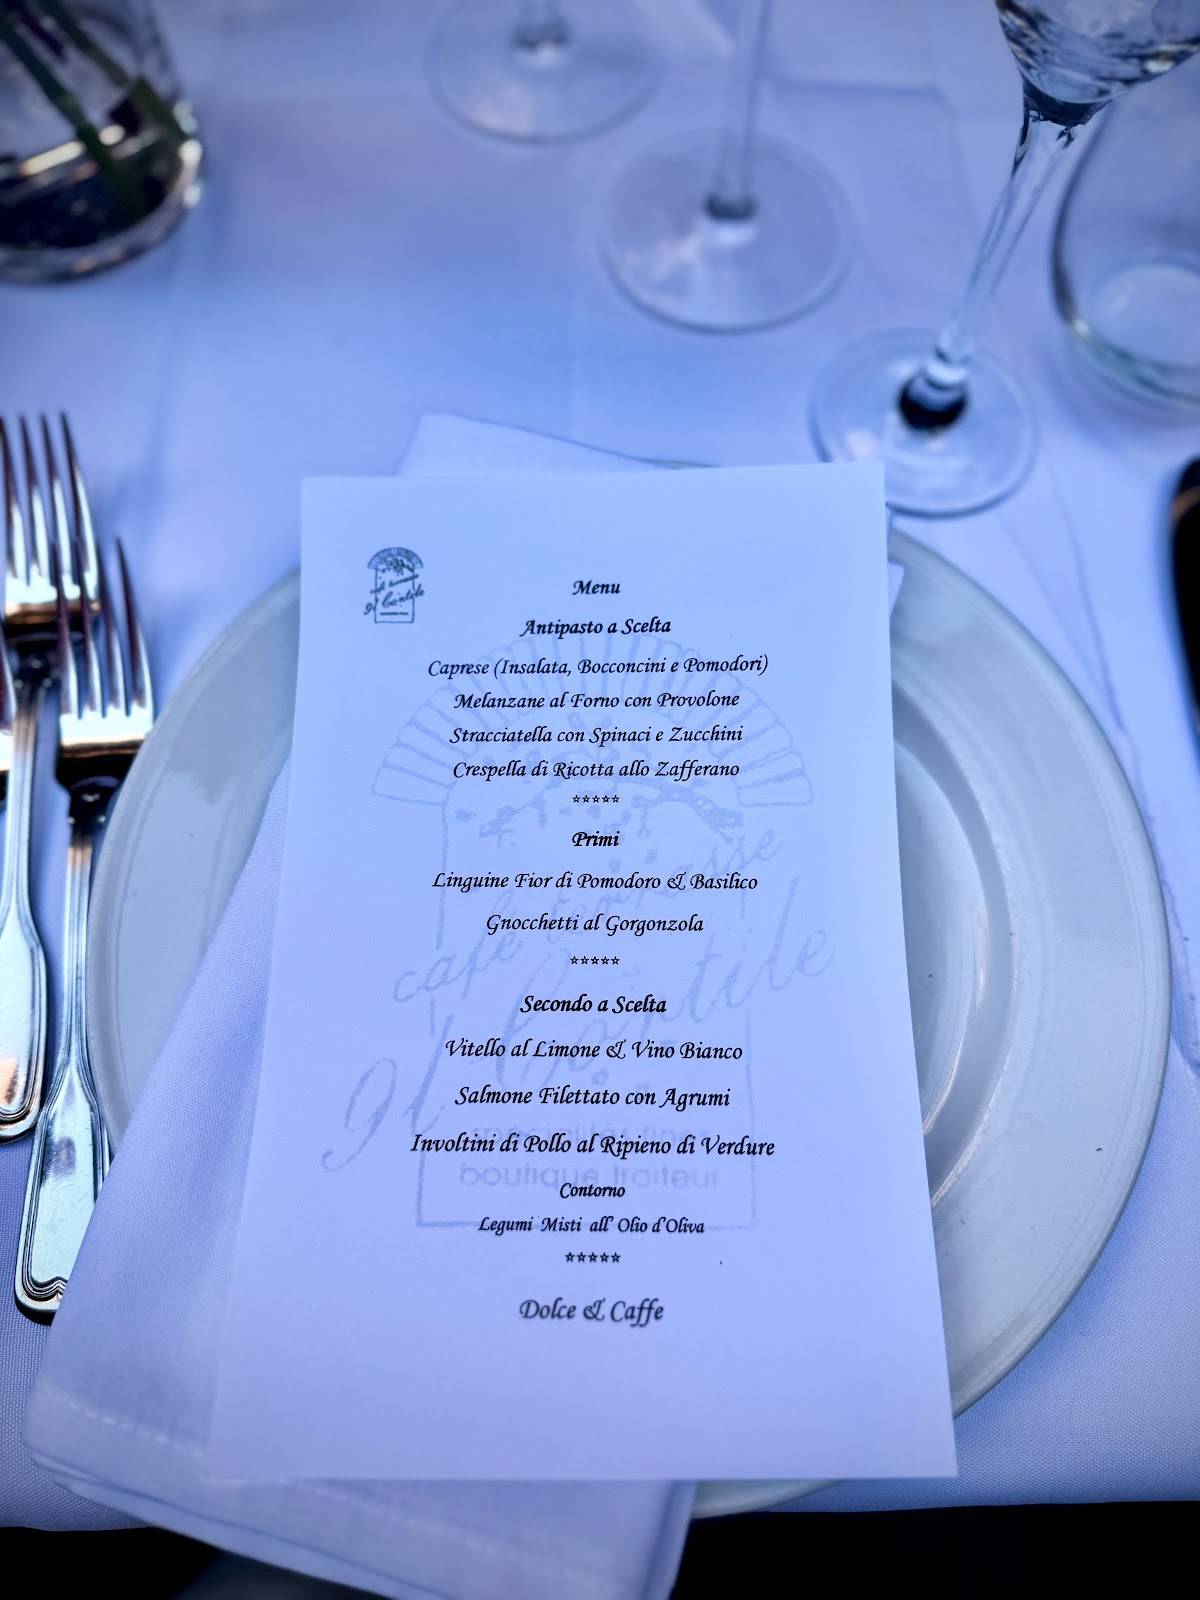 café terrasse
Il Cortile
Menu
Antipasto a Scelta
Caprese (Insalata, Bocconcini e Pomodori)
Melanzane al Forno con Provolone
Stracciatella con Spinaci e Zucchini
Crespella di Ricotta allo Zafferano
*****
Primi
Linguine Fior di Pomodoro & Basilico
Gnocchetti al Gorgonzola
*****
Secondo a Scelta
Vitello al Limone & Vino Bianco
Salmone Filettato con Agrumi
Involtini di Pollo al Ripieno di Verdure
Contorno
Legumi Misti all' Olio d'Oliva
*****
Dolce & Caffe
café terrasse
Il Cortile
spécialités fines
boutique traiteur